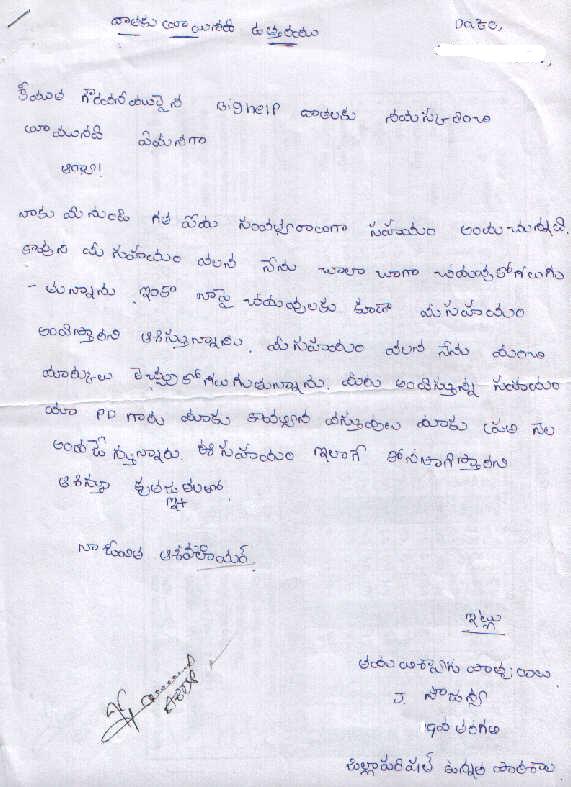 దాతకు వ్రాయునది ఉత్తరము Date,
గౌరవనీయులైన Bighelp దాతలకు నమస్కరించి
వ్రాయునది ఏమనగా
నాకు మీ నుండి గత సంవత్సరాలుగా సహాయం అందుచున్నది.
కావున మీ సహాయం వలన నేను చాలా బాగా చదువుకోగలుగు
- తున్నాను. ఇంకా పై చదువులకు కూడా మీ సహాయం
అందిస్తారని ఆశిస్తున్నాను. మీ సహాయం వలన నేను మంచి
మార్కులు తెచ్చుకోగలుగుతున్నాను. మీరు అందిస్తున్న సహాయం
మా PD గారు మాకు కావలసిన వస్తువులు మాకు ప్రతి నెల
అందజేస్తున్నారు. ఈ సహాయం ఇలాగే కొనసాగిస్తారని
ఆశిస్తూ కృతజ్ఞతలతో
నా జీవిత ఆశయం
ఇట్లు
తమ విశ్వసనీయ
J.
9వ తరగతి
ఉన్నత పాఠశాల